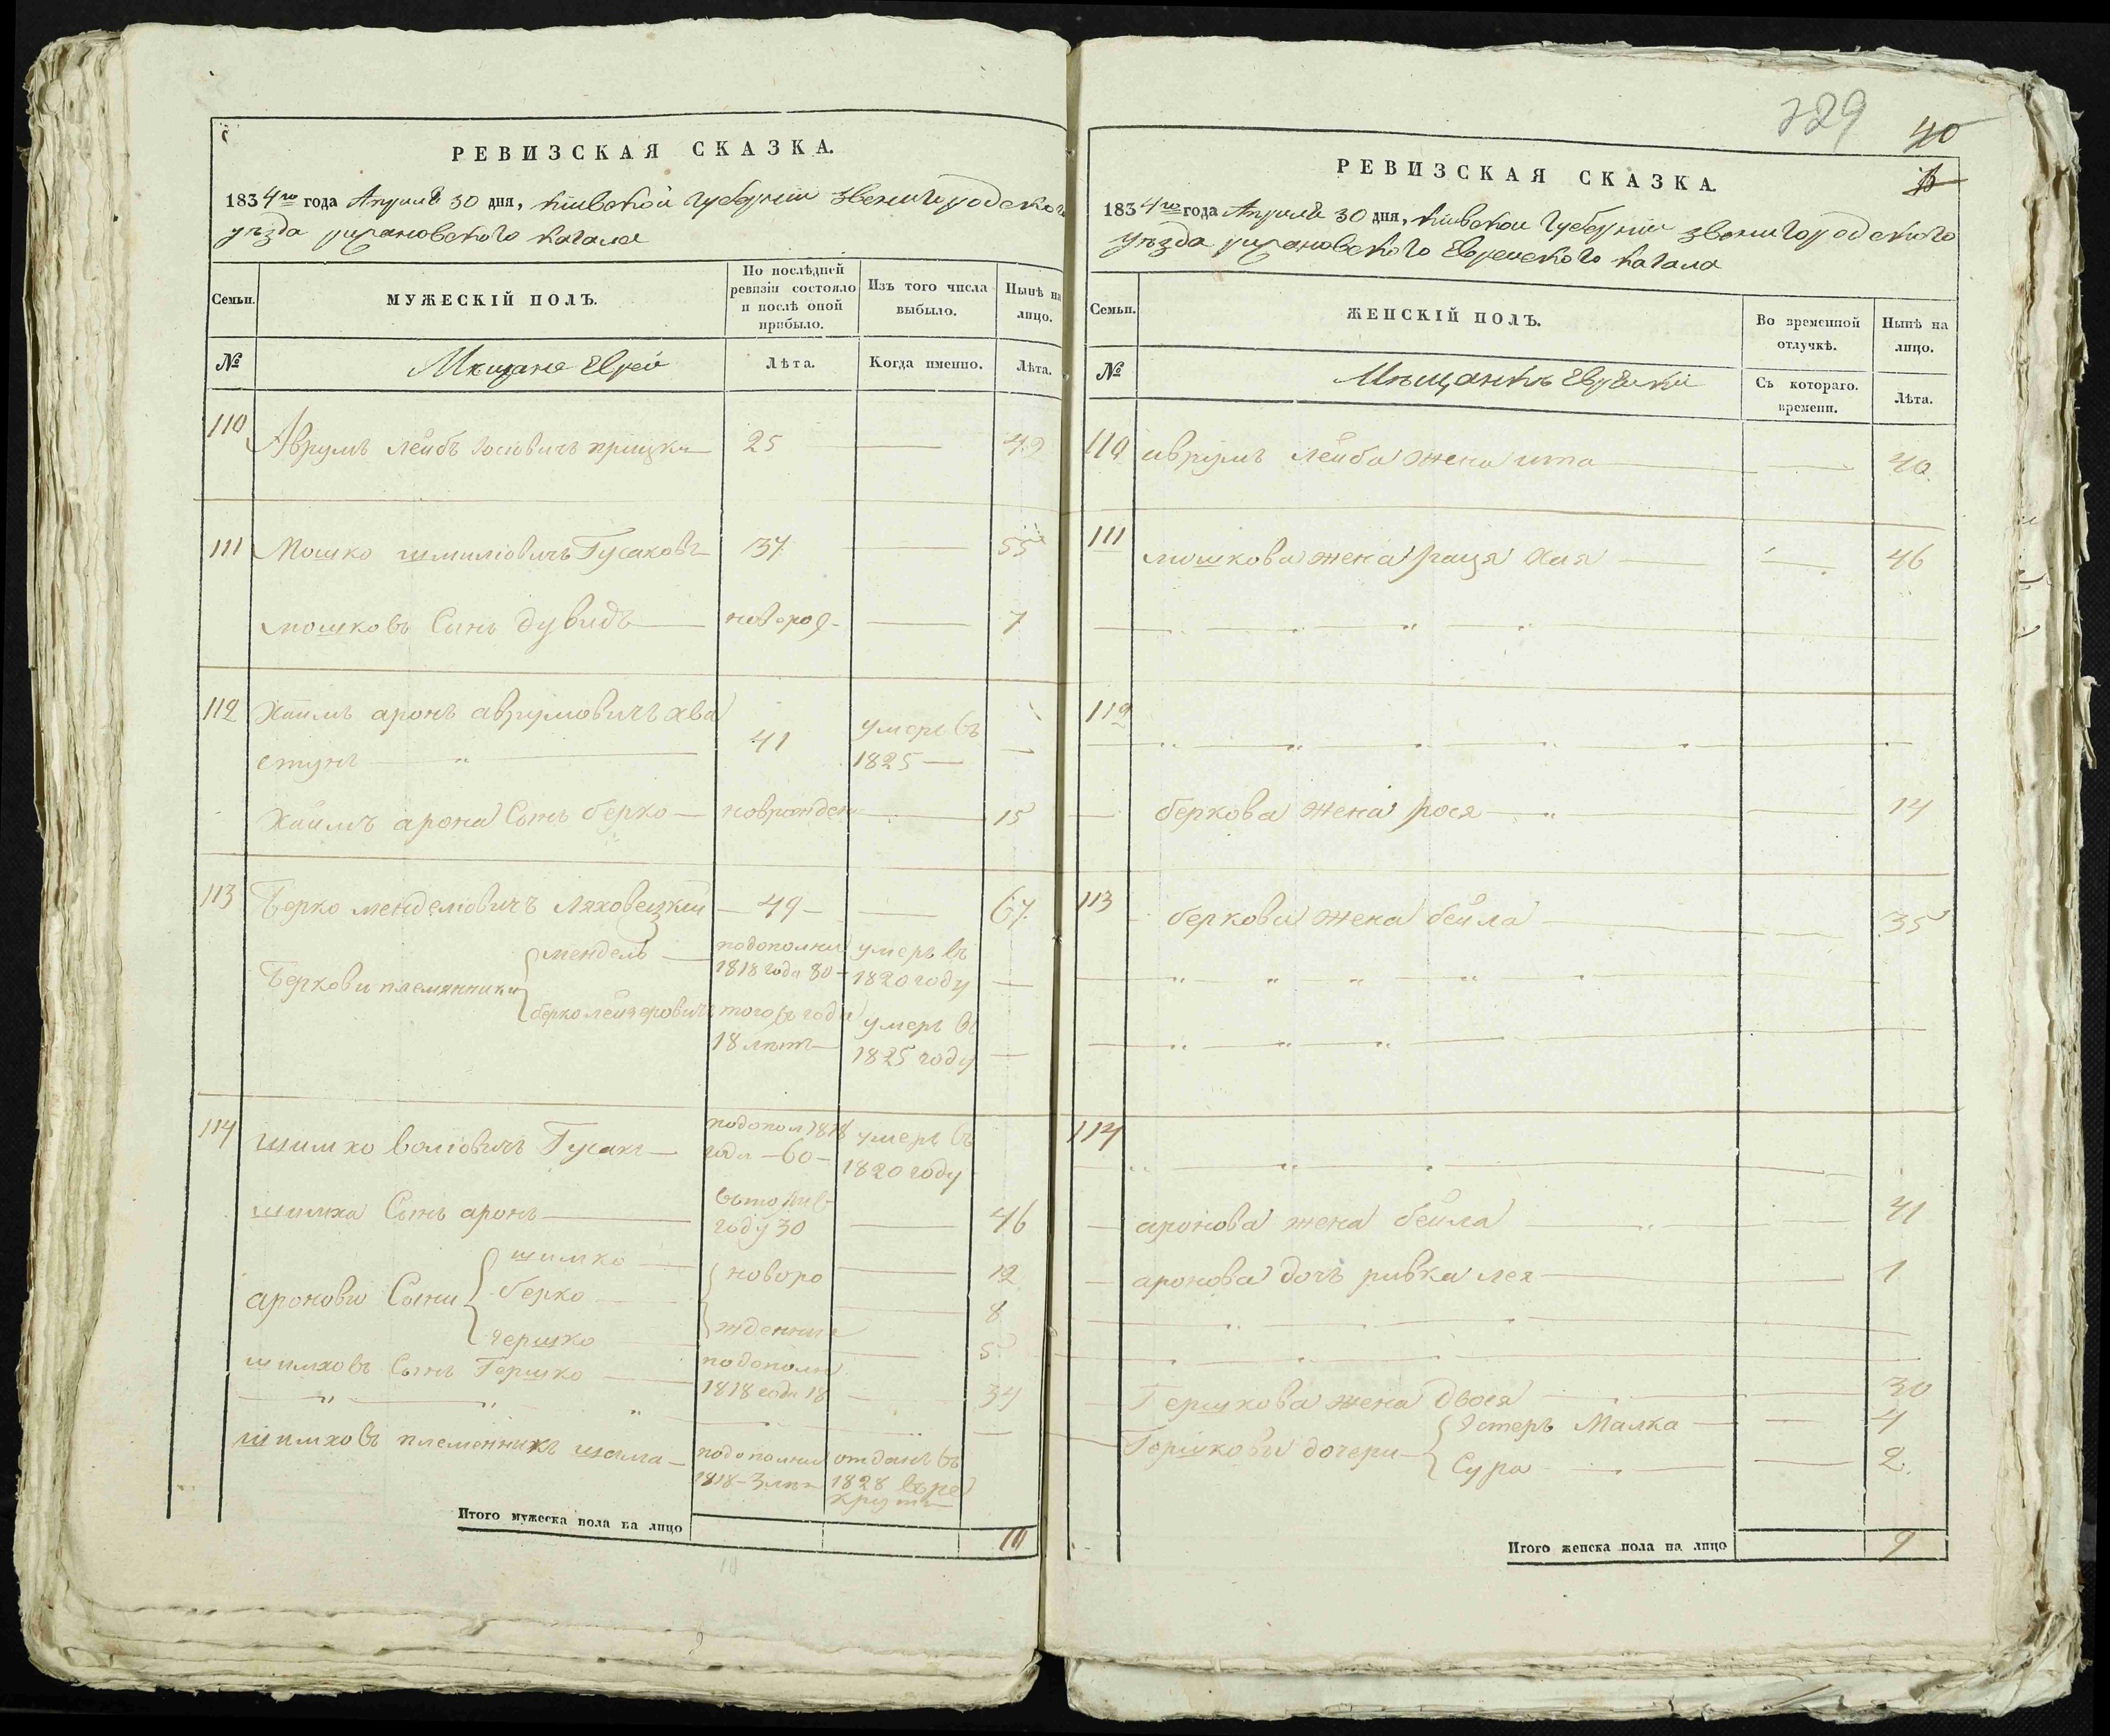 РЕВИЗСКАЯ СКАЗКА.
1834го года Апреля 30 дня, Киевской губернии Звенигородского
уезда кагала
Семьи.
МУЖЕСКІЙ ПОЛЪ.
По послѣдней ревизіи состояло и послѣ оной прибыло.
Изъ того числа выбыло.
Нынѣ на лицо.
№
Мещане Евреи
Лѣта.
Когда именно.
Лѣта.
110 Аврумъ Лейбъ Іосіовичъ 25 — 42
111 Мошко Шмиліовичъ Гусаковъ 37 — 55
мошковъ Синъ дувидъ — новорож — 7
112 Хаимъ аронъ аврумовичъ хва
стунъ — 41 умеръ въ 1825 —
Хаимъ арона Сынъ берко — новрожден — 15
113 Берко менделіовичъ Ляховецкій — 49 — — 67
Беркови племянники
мендель — подополни 1818 года 80 — умеръ въ 1820 году —
берко лейзеровичъ того въ года 18 летъ — умеръ въ 1825 году —
114 шимхо воліовичъ Гусакъ — подопол 1818 года — 60 — умеръ въ 1820 году
шимха Сынъ аронъ — году 30 — 46
аронови Сыни
шимхо — новоро — 12
берко — 8
гершко — жденние — 5
шимховъ Сынъ Гершко — подополн 1818 года 18 — 34
шимховъ племенникъ шама — подополни 1818 - 3 лет отданъ въ 1828 въ ре
круты
Итого мужеска пола на лицо
10
10
229
40
РЕВИЗСКАЯ СКАЗКА.
1834го года Апреля 30 дня, Киевской Губерніи Звенигородского
уезда Еврейского Кагала
Семьи.
ЖЕНСКІЙ ПОЛЪ.
Во временной отлучкѣ.
Нынѣ на лицо.
№
Мещанкъ Еврейки
Съ котораго. времени.
Лѣта.
110 аврумъ лейба жена ита — — 40
111 мошкова жена раця хая — — 46
112
беркова жена рося — — 14
113 беркова жена бейла — 35
114
аронова жена бейла — — 41
аронова дочъ ривка лея — — 1
Гершкова жена двося — 30
Гершкови дочери
Эстеръ Малка — — 4
Сура — — 2
Итого женска пола на лицо
9